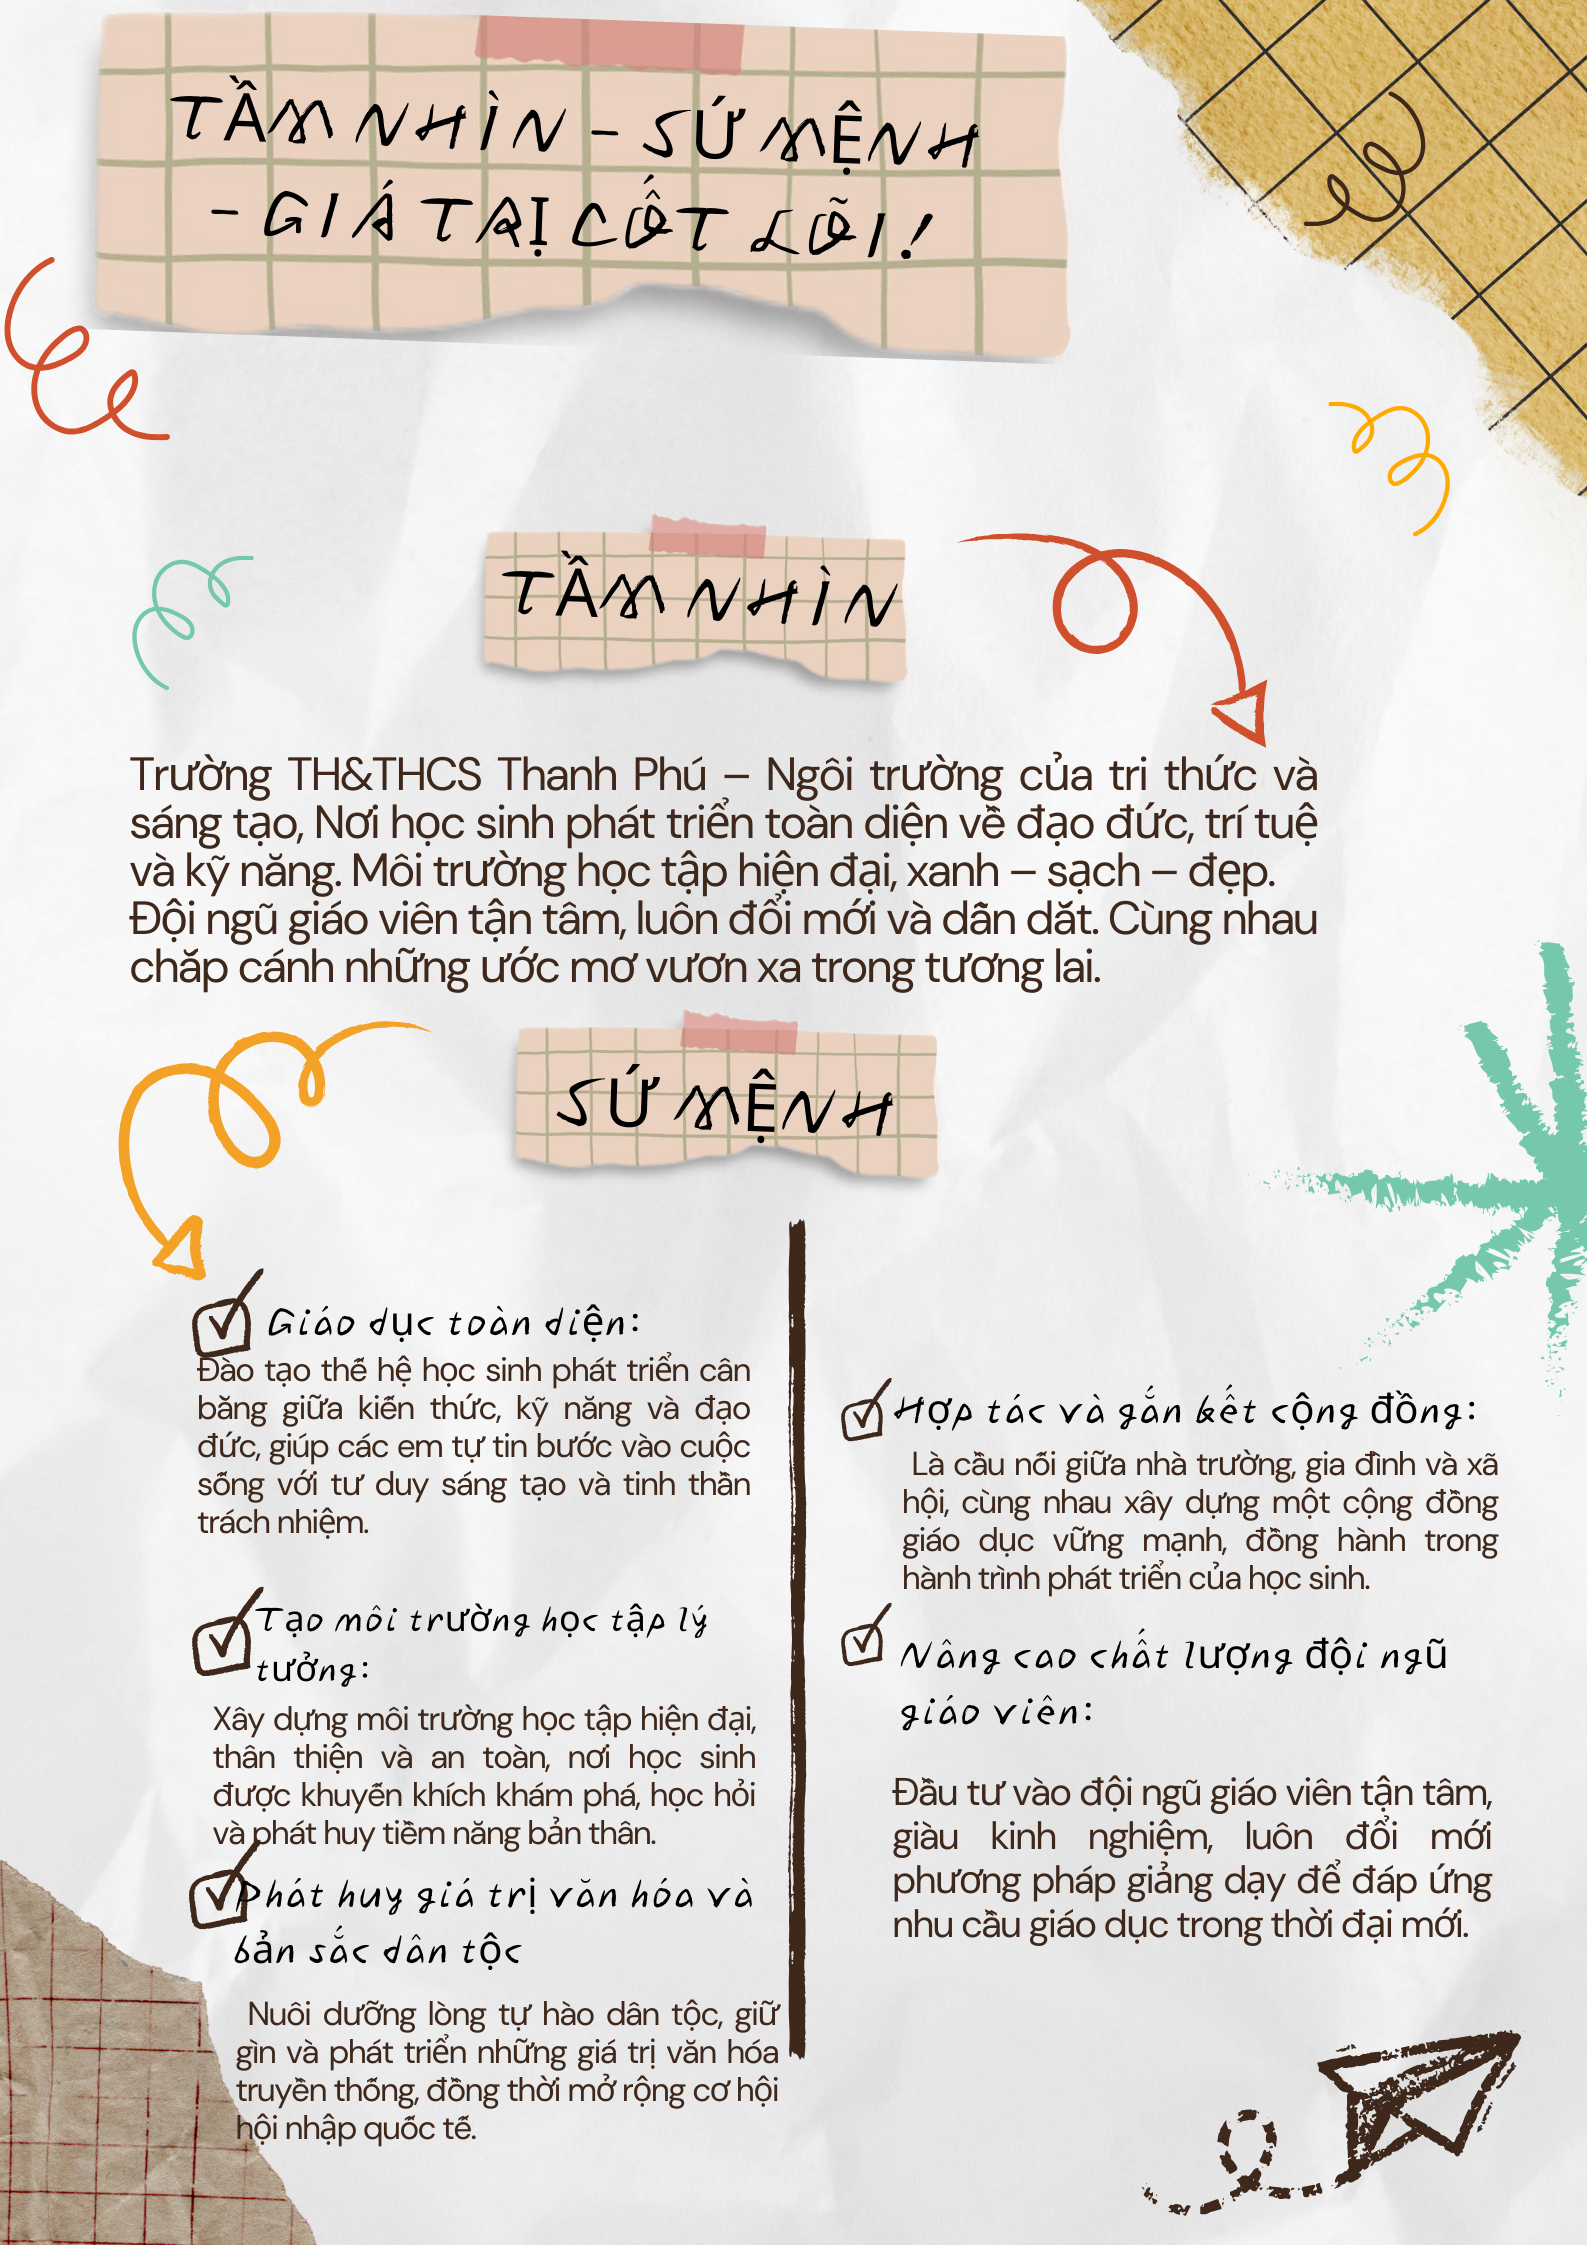 TẦM NHÌN - SỨ MỆNH
- GIÁ TRỊ CỐT LÕI!
TẦM NHÌN
Trường TH&THCS Thanh Phú – Ngôi trường của tri thức và
sáng tạo, Nơi học sinh phát triển toàn diện về đạo đức, trí tuệ
và kỹ năng. Môi trường học tập hiện đại, xanh – sạch – đẹp.
Đội ngũ giáo viên tận tâm, luôn đổi mới và dẫn dắt. Cùng nhau
chắp cánh những ước mơ vươn xa trong tương lai.
SỨ MỆNH
Giáo dục toàn diện:
Đào tạo thế hệ học sinh phát triển cân
bằng giữa kiến thức, kỹ năng và đạo
đức, giúp các em tự tin bước vào cuộc
sống với tư duy sáng tạo và tinh thần
trách nhiệm.
Tạo môi trường học tập lý
tưởng:
Xây dựng môi trường học tập hiện đại,
thân thiện và an toàn, nơi học sinh
được khuyến khích khám phá, học hỏi
và phát huy tiềm năng bản thân.
Phát huy giá trị văn hóa và
bản sắc dân tộc
Nuôi dưỡng lòng tự hào dân tộc, giữ
gìn và phát triển những giá trị văn hóa
truyền thống, đồng thời mở rộng cơ hội
hội nhập quốc tế.
Hợp tác và gắn kết cộng đồng:
Là cầu nối giữa nhà trường, gia đình và xã
hội, cùng nhau xây dựng một cộng đồng
giáo dục vững mạnh, đồng hành trong
hành trình phát triển của học sinh.
Nâng cao chất lượng đội ngũ
giáo viên:
Đầu tư vào đội ngũ giáo viên tận tâm,
giàu kinh nghiệm, luôn đổi mới
phương pháp giảng dạy để đáp ứng
nhu cầu giáo dục trong thời đại mới.